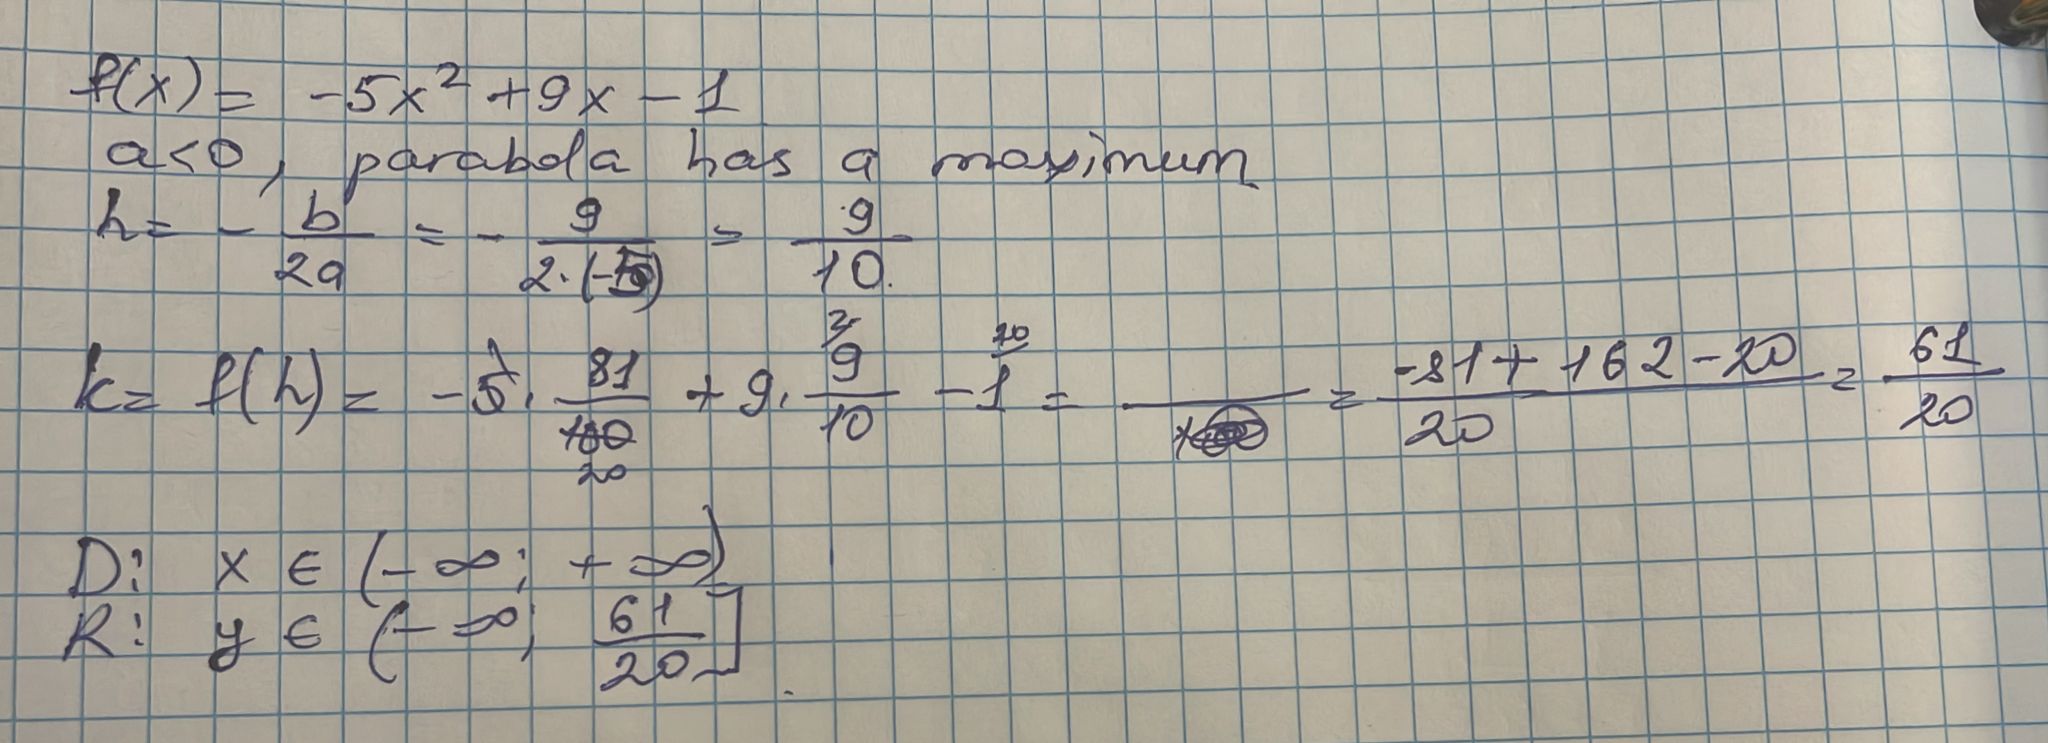 f(x) = -5x² + 9x - 1
a<0, parabola has a maximum
h = - b/2a = - 9/2·(-5) = 9/10
k = f(h) = -5·81/100 20 + 9·9/10 2 - 1 20 = ─── = -81 + 162 - 20/20 = 61/20
D: x ∈ (-∞; +∞)
R: y ∈ (-∞; 61/20]